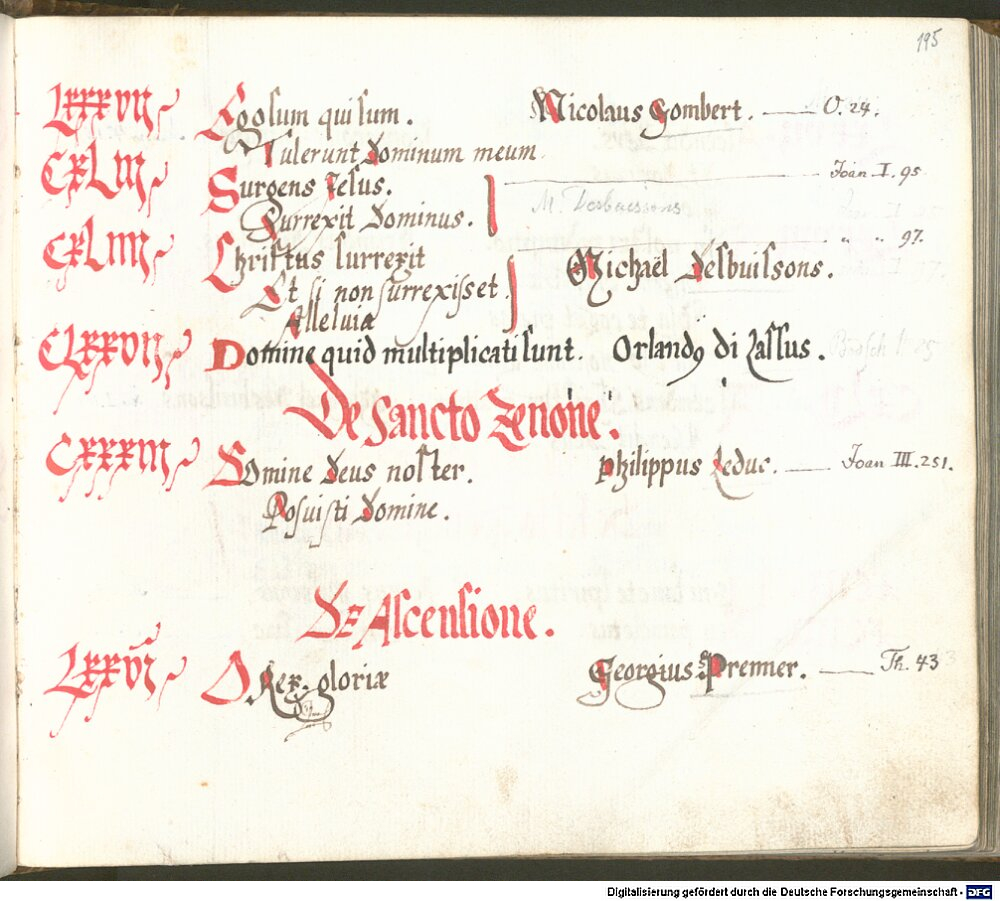 195
LXXXVII Egosum qui sum. Nicolaus Gombert. — O. 24.
Tulerunt Dominum meum.
CXLIII Surgens Jesus. Joan I. 95
Surrexit Dominus. M. Desbuissons
" " 97.
CXLIIII Christus surrexit Michaël Desbuissons.
Et si non surrexisset
Alleluia
CLXXVII Domine quid multiplicati sunt. Orlandꝰ di Lassus.
De Sancto Zenone.
CXXXIII Domine Deus noster. Philippus Leduc. — Joan III. 251.
Posuisti Domine.
De Ascensione.
LXXVI O Rex gloriæ Georgius Prenner. — Th. 43
Digitalisierung gefördert durch die Deutsche Forschungsgemeinschaft - DFG